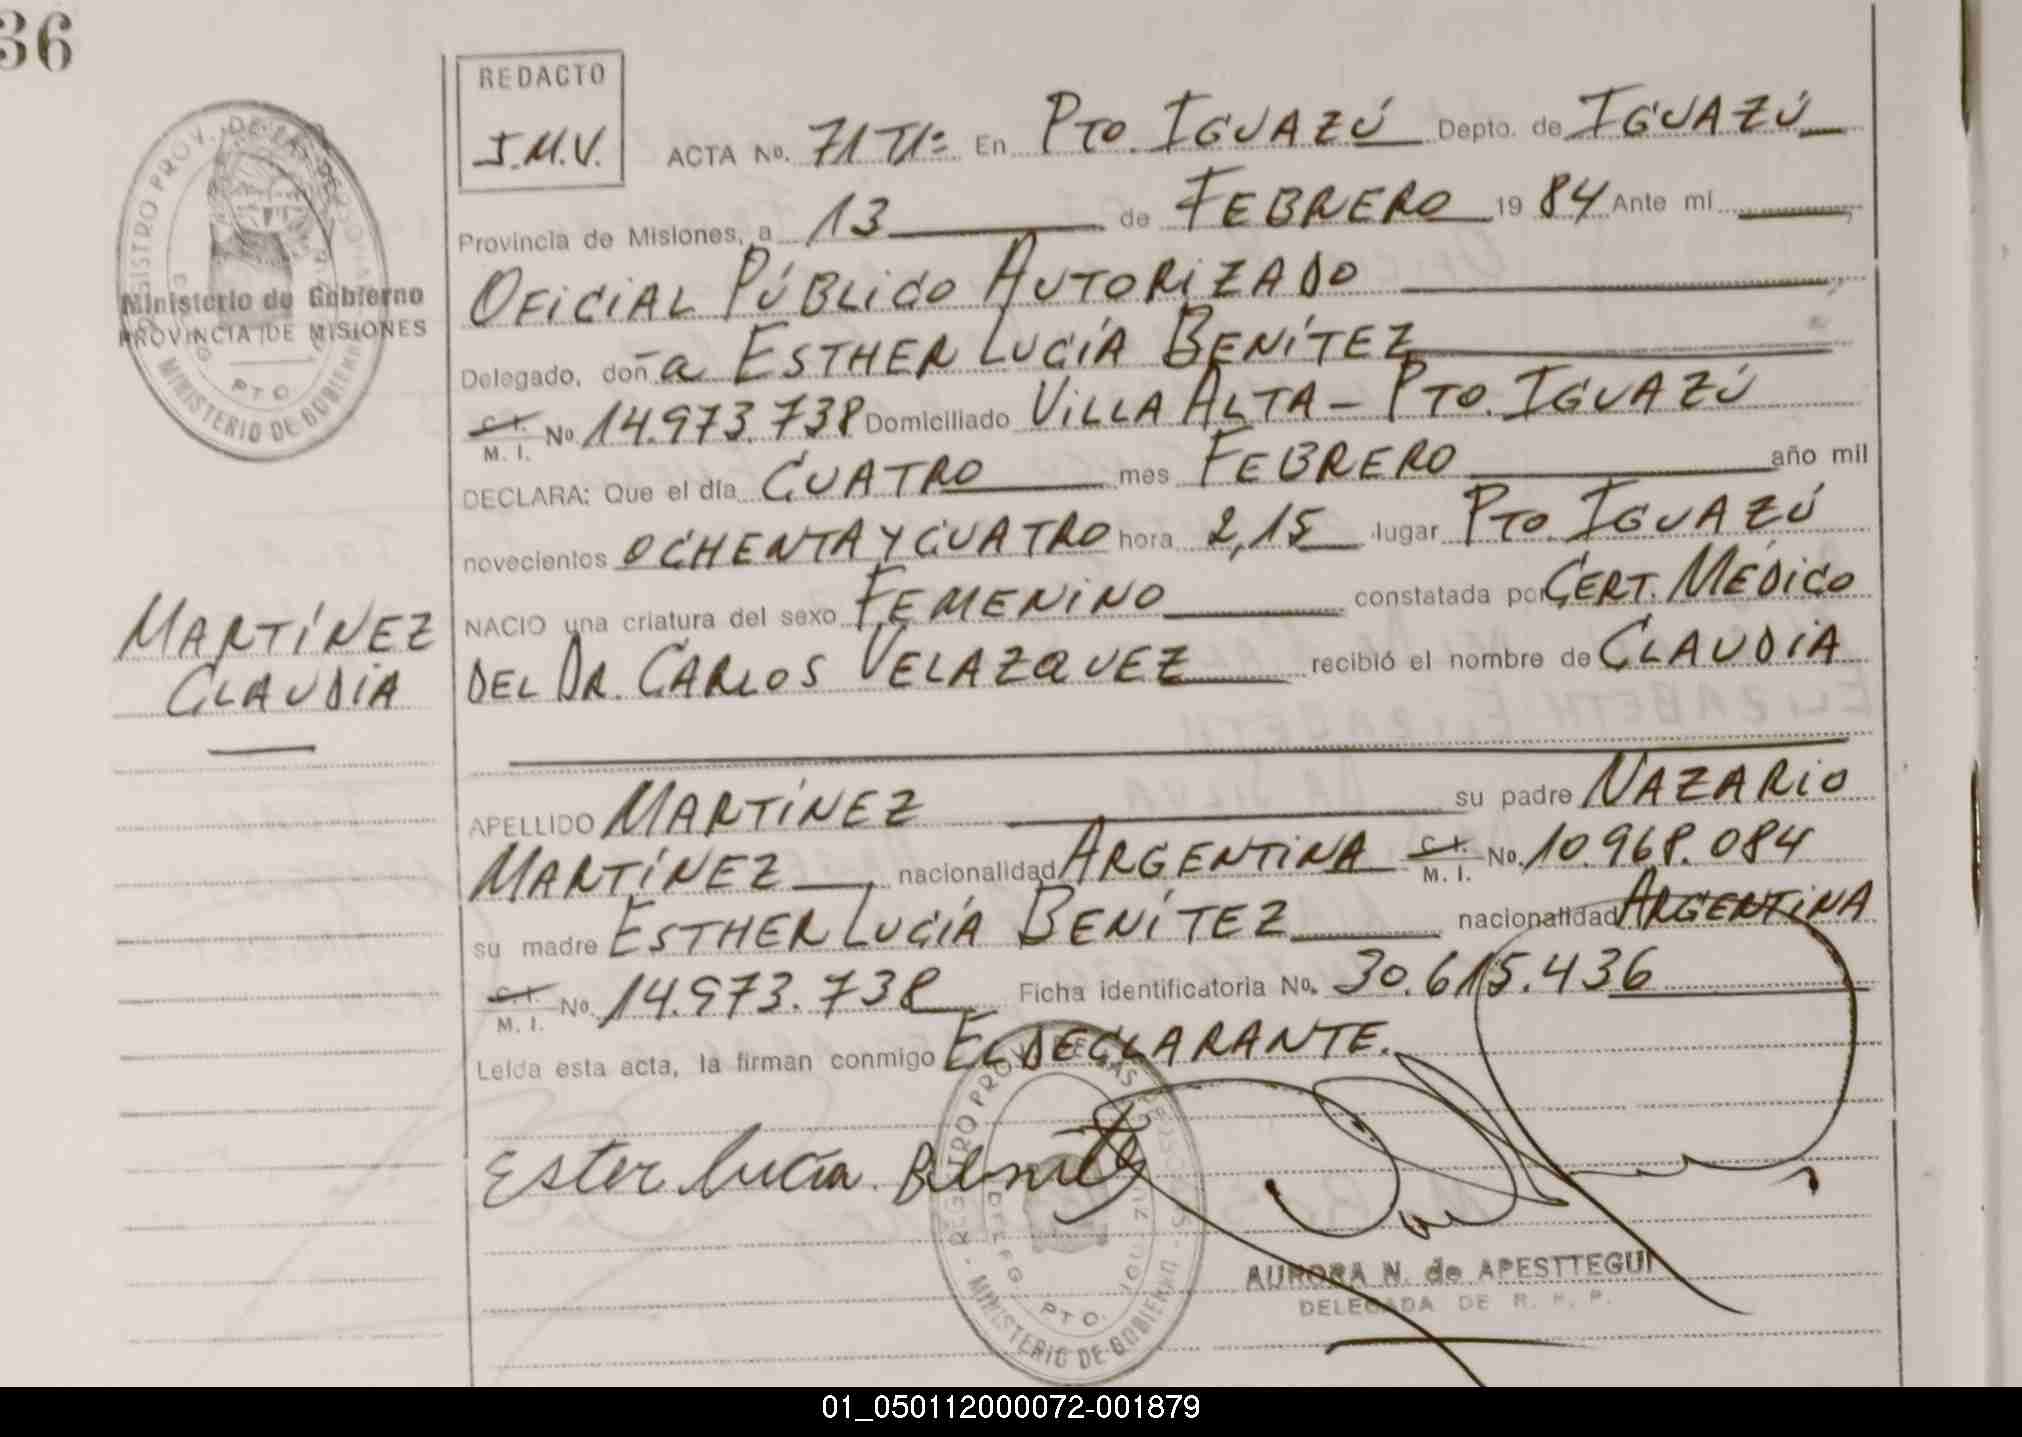 36
REDACTO
J.M.V.
ACTA No. 71 T1º En PTO. IGUAZÚ Depto. de IGUAZÚ
Provincia de Misiones, a 13 de FEBRERO 19 84 Ante mí
OFICIAL PÚBLICO AUTORIZADO
Delegado, doña ESTHER LUCÍA BENÍTEZ
C. I. M. I. No. 14.973.738 Domiciliado VILLA ALTA - PTO. IGUAZÚ
DECLARA: Que el día CUATRO mes FEBRERO año mil
novecientos OCHENTA Y CUATRO hora 2,15 lugar PTO. IGUAZÚ
NACIO una criatura del sexo FEMENINO constatada por CERT. MÉDICO
DEL DR. CARLOS VELAZQUEZ recibió el nombre de CLAUDIA
APELLIDO MARTÍNEZ su padre NAZARIO
MARTÍNEZ nacionalidad ARGENTINA C. I. M. I. No. 10.968.084
su madre ESTHER LUCÍA BENÍTEZ nacionalidad ARGENTINA
C. I. M. I. No. 14.973.738 Ficha identificatoria No. 30.615.436
Leída esta acta, la firman conmigo EL DECLARANTE.
Ester Lucía Benítez
AURORA N. de APESTTEGUI
DELEGADA DE R. P. P.
REGISTRO PROV. DE LAS PERSONAS
MINISTERIO DE GOBIERNO
PTO. IGUAZU
Ministerio de Gobierno
PROVINCIA DE MISIONES
REGISTRO PROV. DE LAS PERSONAS
MINISTERIO DE GOBIERNO
PTO.
MARTÍNEZ
CLAUDIA
01_050112000072-001879